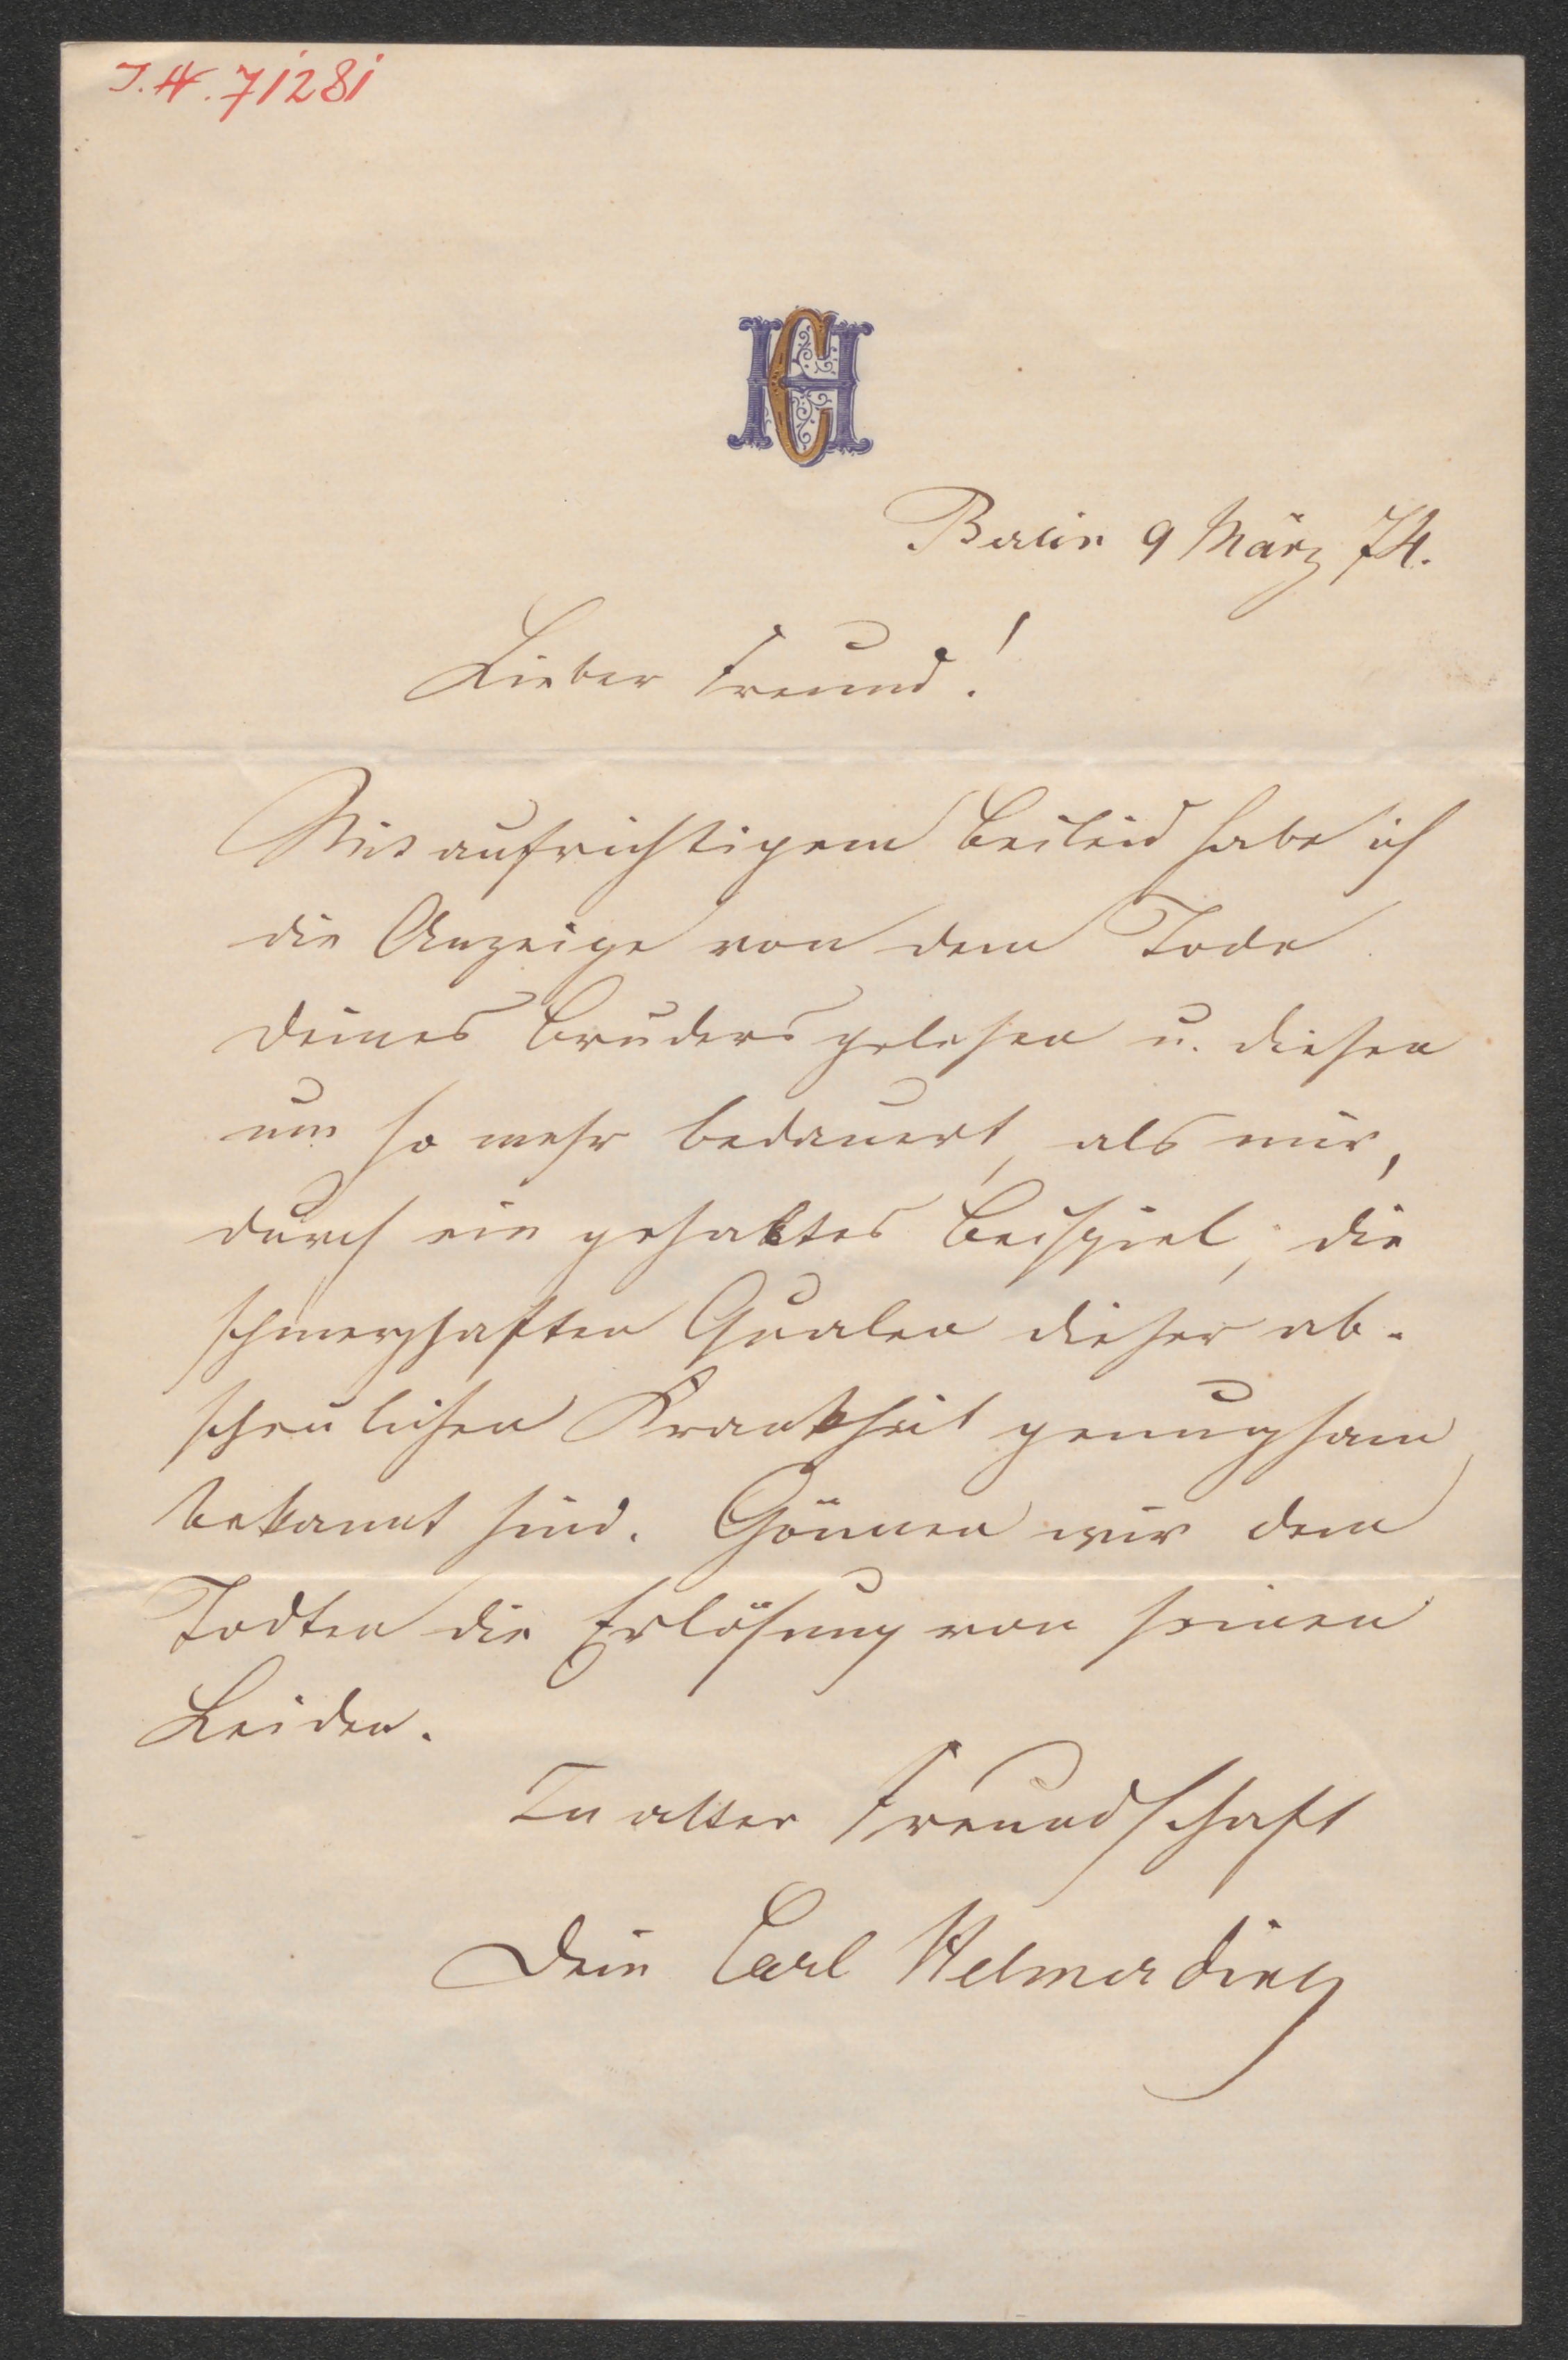 J.N. 71281
CH
Berlin 9 März 74.
Lieber Freund!
Mit aufrichtigem Beileid habe ich
die Anzeige von dem Tode
Deines Bruders gelesen u. diesen
um so mehr bedauert, als mir,
durch ein gehabtes Beispiel, die
schmerzhaften Qualen dieser ab-
scheulichen Krankheit genugsam
bekannt sind. Gönnen wir dem
Todten die Erlösung von seinen
Leiden.
In alter Freundschaft
Dein Carl Helmerding